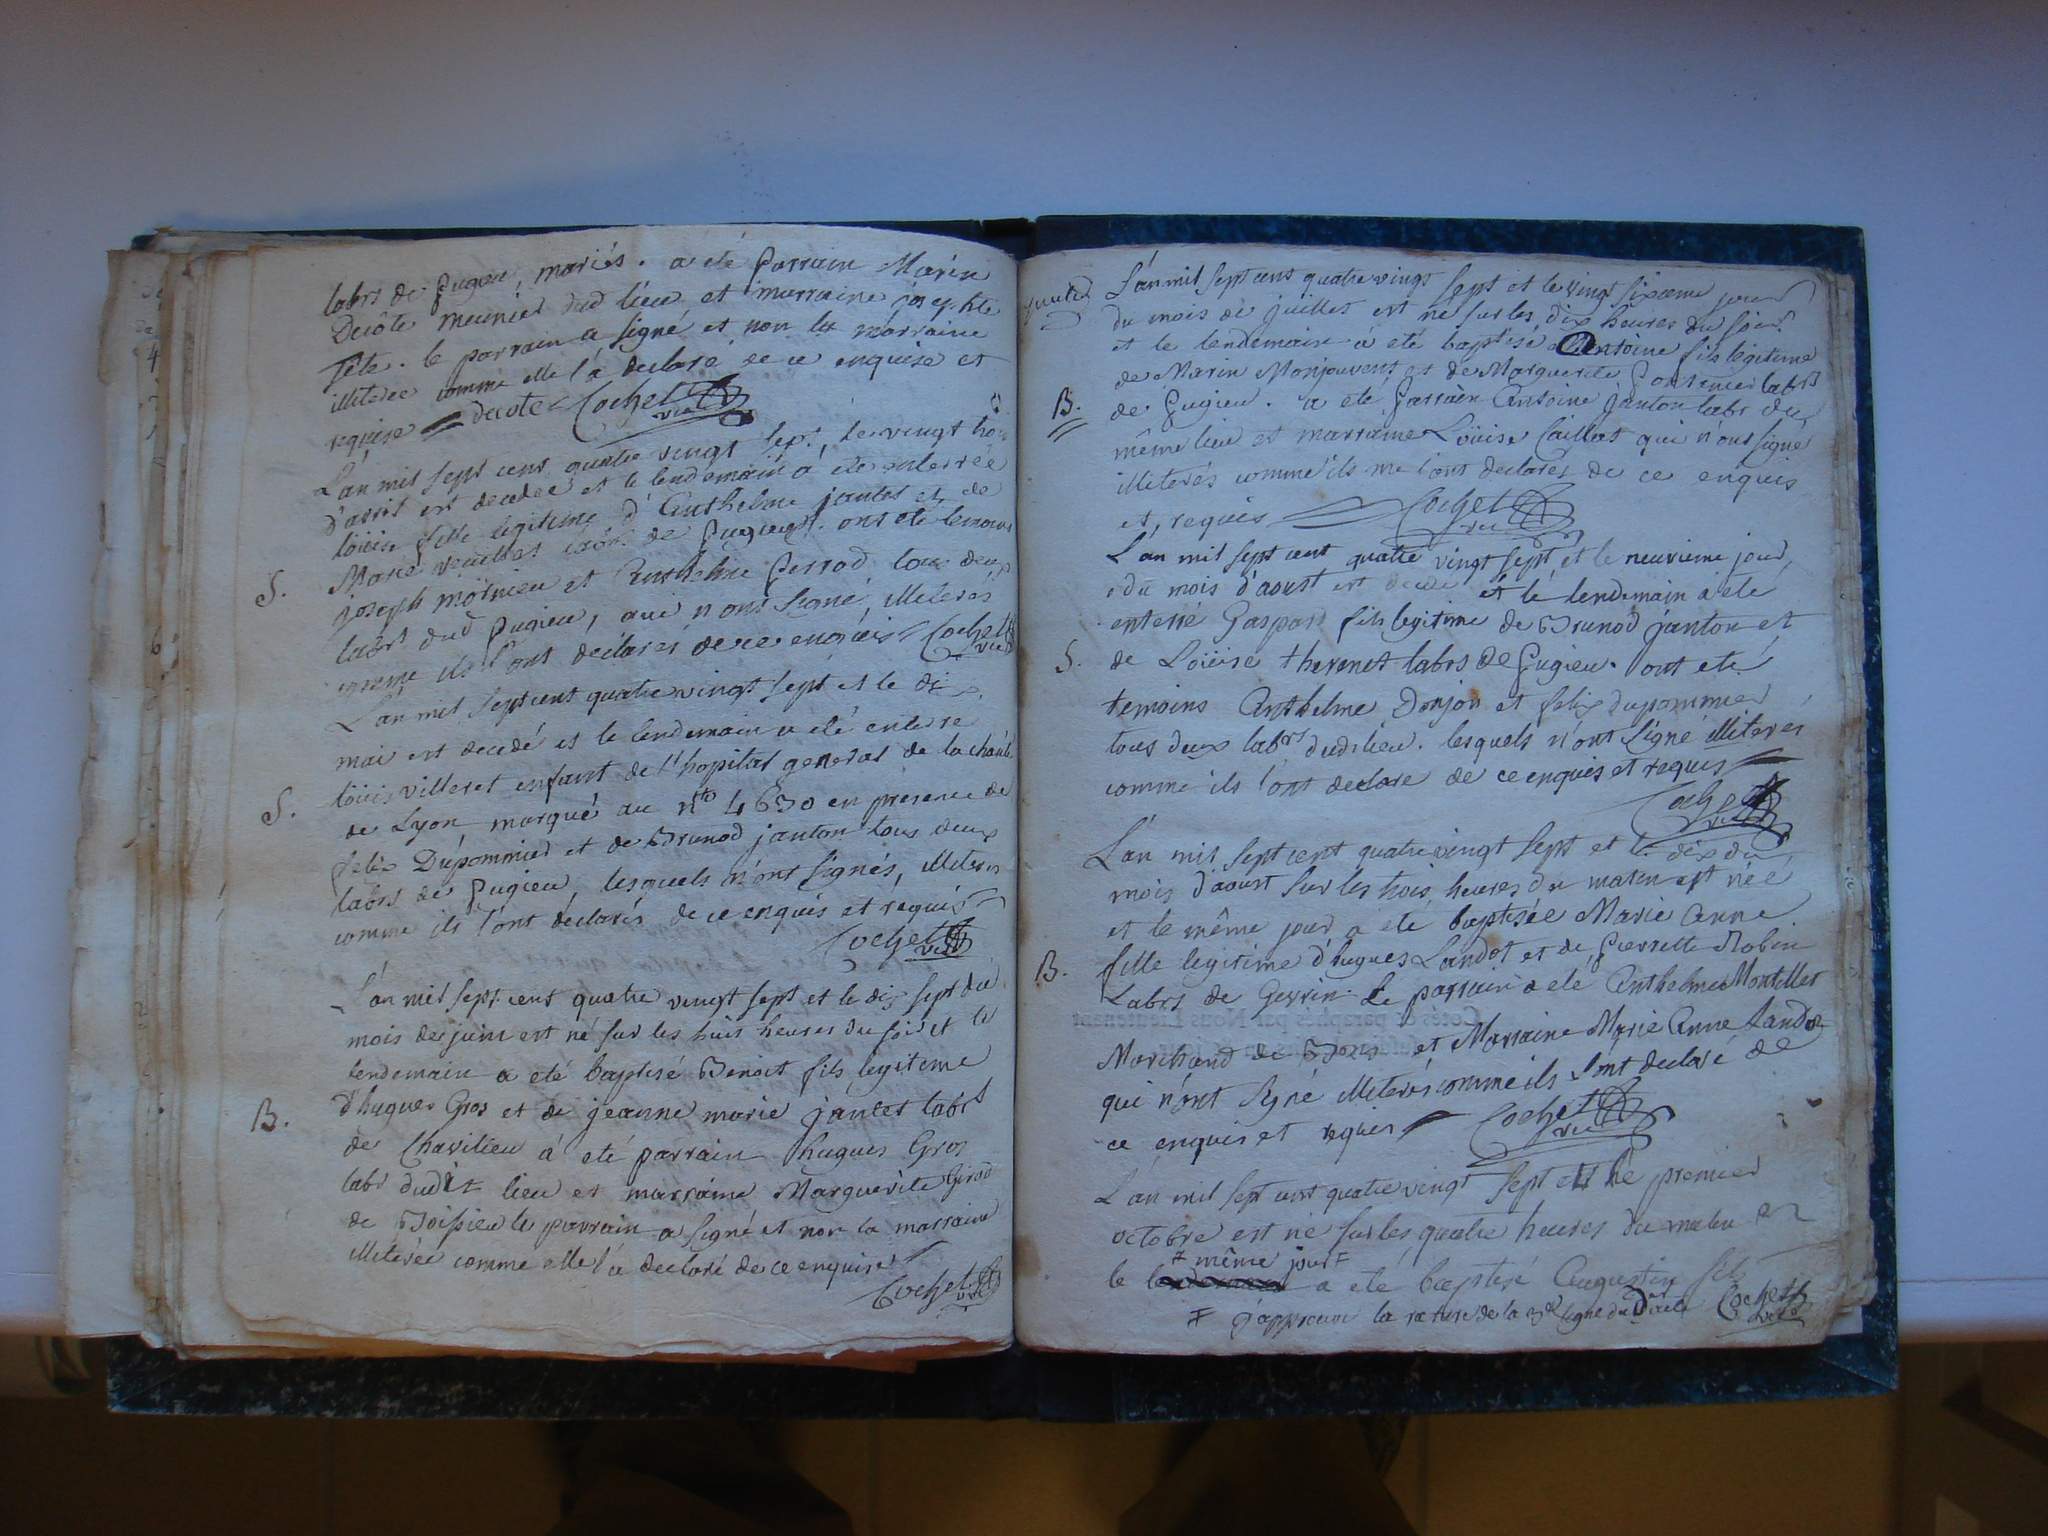 labrs de Pugieu, mariés. a eté parrain Marin
Decôte meunier dud lieu, et marraine josephte
Tête. le parrain a signé et non la marraine
illiterée comme elle l'a declaré de ce enquise et
requise decote Cochet vic
L'an mil sept cent quatre vingt sept, le vingt trois
d'avril est decedée et le lendemain a été enterrée
loüise fille legitime d'Anthelme jantet et de
Marie veuillet labrs de Pugieu. ont été temoins
joseph moinieu et Anthelme Perrod tous deux
labrs dud Pugieu, qui n'ont signé, illiterés
comme ils l'ont déclarés de ce enquis Cochet vic
S.
L'an mil sept cent quatre vingt sept et le dix
mai est decedé et le lendemain a eté enterré
loüis villeret enfant de l'hopital general de la charité
de Lyon marqué au nto 4630 en presence de
felix Dupommier et de Brunod janton tous deux
labrs de Pugieu, lesquels n'ont signés, illiterés
comme ils l'ont déclarés de ce enquis et requis
S.
Cochet vic
L'an mil sept cent quatre vingt sept et le dix sept du
mois de juin est né sur les huit heures du soir et le
lendemain a eté baptisé Benoit fils legitime
d'hugues Gros et de jeanne marie jantet labrs
B.
de Chavilieu a eté parrain hugues Gros
labr dudit lieu et marraine Marguerite Girod
de Boissieu le parrain a signé et non la marraine
illiterée comme elle l'a declaré de ce enquise
Cochet vic
L'an mil sept cent quatre vingt sept et le vingt sixieme jour
du mois de juillet est né sur les dix heures du soir
et le lendemain a eté baptisé Antoine fils legitime
de Marin Monjouvent et de Marguerite labrs
B.
de Pugieu. a eté parrain Antoine janton labr du
même lieu et marraine Loüise Caillat qui n'ont signé
illiterés comme ils me l'ont declarés de ce enquis
et requis Cochet vic
L'an mil sept cent quatre vingt sept et le neuvieme jour
du mois d'aoust est decedé et le lendemain a eté
enterré Gaspar fils legitime de Brunod janton et
S.
de Loüise thevenet labrs de Pugieu. ont eté
temoins Anthelme Donjon et felix dupommier
tous deux labrs dudit lieu. lesquels n'ont signé illiterés
comme ils l'ont declare de ce enquis et requis
Cochet vic
L'an mil sept cent quatre vingt sept et le dix du
mois d'aoust sur les trois heures du matin est née
et le même jour a eté baptisée Marie Anne
B.
fille legitime d'hugues Landot et de Pierrette Robin
Labrs de Gevrin. Le parrain a eté Anthelme Montillet
Marchand de et Marraine Marie Anne Landot
qui n'ont signé illiterés comme ils l'ont declaré de
ce enquis et requis Cochet vic
L'an mil sept cent quatre vingt sept et le premier
octobre est né sur les quatre heures du matin et
+ même jour +
le a eté baptisé Augustin fils
+ j'approuve la rature de la 3e ligne Cochet vic